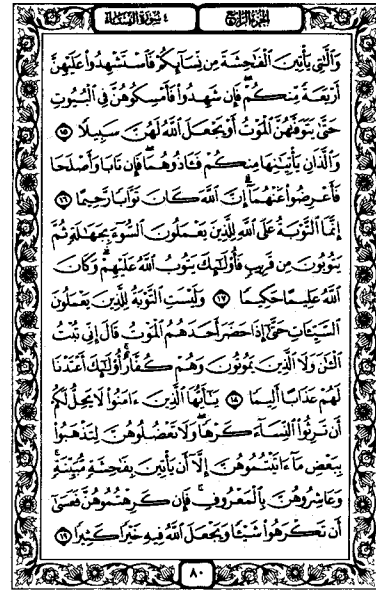 الجزء الرابع
٤ سورة النساء
وَٱلَّـٰتِى يَأْتِينَ ٱلْفَـٰحِشَةَ مِن نِّسَآئِكُمْ فَٱسْتَشْهِدُوا۟ عَلَيْهِنَّ
أَرْبَعَةً مِّنكُمْ ۖ فَإِن شَهِدُوا۟ فَأَمْسِكُوهُنَّ فِى ٱلْبُيُوتِ
حَتَّىٰ يَتَوَفَّىٰهُنَّ ٱلْمَوْتُ أَوْ يَجْعَلَ ٱللَّهُ لَهُنَّ سَبِيلًا ١٥
وَٱلَّذَانِ يَأْتِيَـٰنِهَا مِنكُمْ فَـَٔاذُوهُمَا ۖ فَإِن تَابَا وَأَصْلَحَا
فَأَعْرِضُوا۟ عَنْهُمَآ ۗ إِنَّ ٱللَّهَ كَانَ تَوَّابًا رَّحِيمًا ١٦
إِنَّمَا ٱلتَّوْبَةُ عَلَى ٱللَّهِ لِلَّذِينَ يَعْمَلُونَ ٱلسُّوٓءَ بِجَهَـٰلَةٍ ثُمَّ
يَتُوبُونَ مِن قَرِيبٍ فَأُو۟لَـٰٓئِكَ يَتُوبُ ٱللَّهُ عَلَيْهِمْ ۗ وَكَانَ
ٱللَّهُ عَلِيمًا حَكِيمًا ١٧ وَلَيْسَتِ ٱلتَّوْبَةُ لِلَّذِينَ يَعْمَلُونَ
ٱلسَّيِّـَٔاتِ حَتَّىٰٓ إِذَا حَضَرَ أَحَدَهُمُ ٱلْمَوْتُ قَالَ إِنِّى تُبْتُ
ٱلْـَٔـٰنَ وَلَا ٱلَّذِينَ يَمُوتُونَ وَهُمْ كُفَّارٌ ۚ أُو۟لَـٰٓئِكَ أَعْتَدْنَا
لَهُمْ عَذَابًا أَلِيمًا ١٨ يَـٰٓأَيُّهَا ٱلَّذِينَ ءَامَنُوا۟ لَا يَحِلُّ لَكُمْ
أَن تَرِثُوا۟ ٱلنِّسَآءَ كَرْهًا ۖ وَلَا تَعْضُلُوهُنَّ لِتَذْهَبُوا۟
بِبَعْضِ مَآ ءَاتَيْتُمُوهُنَّ إِلَّآ أَن يَأْتِينَ بِفَـٰحِشَةٍ مُّبَيِّنَةٍ ۚ
وَعَاشِرُوهُنَّ بِٱلْمَعْرُوفِ ۚ فَإِن كَرِهْتُمُوهُنَّ فَعَسَىٰٓ
أَن تَكْرَهُوا۟ شَيْـًٔا وَيَجْعَلَ ٱللَّهُ فِيهِ خَيْرًا كَثِيرًا ١٩
٨٠